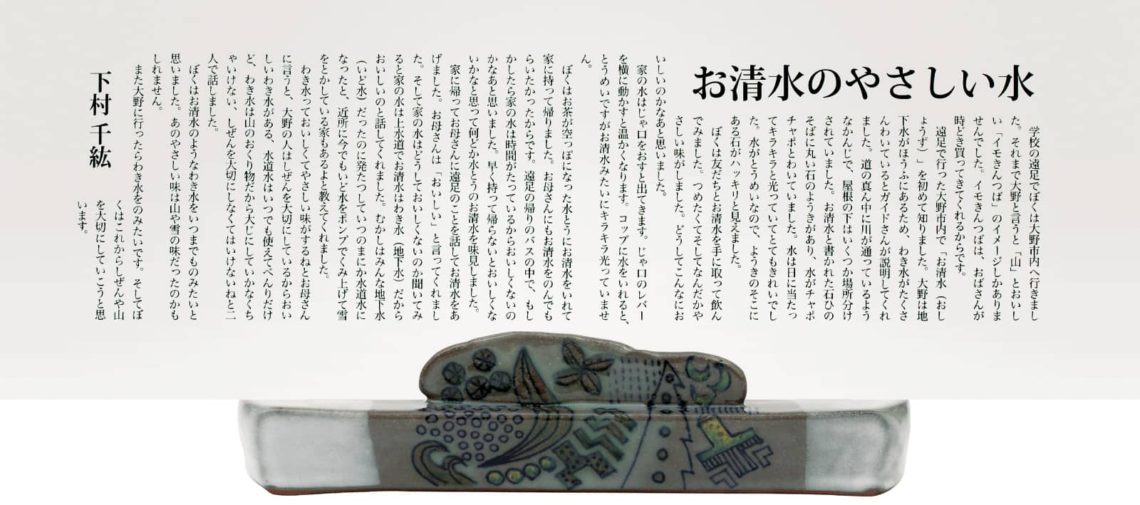 お清水のやさしい水
学校の遠足でぼくは大野市内へ行きまし
た。それまで大野と言うと「山」とおいし
い「イモきんつば」のイメージしかありま
せんでした。イモきんつばは、おばさんが
時どき買ってきてくれるからです。
遠足で行った大野市内で「お清水（おし
ょうず）」を初めて知りました。大野は地
下水がほうふにあるため、わき水がたくさ
んわいているとガイドさんが説明してくれ
ました。道の真ん中に川が通っているよう
なかんじで、屋根の下はいくつか場所分け
されていました。お清水と書かれた石ひの
そばに丸い石のようきがあり、水がチャポ
チャポとわいていました。水は日に当たっ
てキラキラと光っていてとてもきれいでし
た。水がとうめいなので、ようきのそこに
ある石がハッキリと見えました。
ぼくは友だちとお清水を手に取って飲ん
でみました。つめたくてそしてなんだかや
さしい味がしました。どうしてこんなにお
いしいのかなあと思いました。
家の水はじゃ口をおすと出てきます。じゃ口のレバー
を横に動かすと温かくなります。コップに水をいれると、
とうめいですがお清水みたいにキラキラ光っていませ
ん。
ぼくはお茶が空っぽになった水とうにお清水をいれて
家に持って帰りました。お母さんにもお清水をのんでも
らいたかったからです。遠足の帰りのバスの中で、もし
かしたら家の水は時間がたっているからおいしくないの
かなあと思いました。早く持って帰らないとおいしくな
いかなと思って何どか水とうのお清水を味見しました。
家に帰ってお母さんに遠足のことを話してお清水をあ
げました。お母さんは「おいしい」と言ってくれまし
た。そして家の水はどうしておいしくないのか聞いてみ
ると家の水は上水道でお清水はわき水（地下水）だから
おいしいのと話してくれました。むかしはみんな地下水
（いど水）だったのに発たつしていつのまにか水道水に
なったと、近所に今でもいど水をポンプでくみ上げて雪
をとかしている家もあるよと教えてくれました。
わき水っておいしくてやさしい味がするねとお母さん
に言うと、大野の人はしぜんを大切にしているからおい
しいわき水がある、水道水はいつでも使えてべんりだけ
ど、わき水は山のおくり物だから大じにしていかなくち
ゃいけない、しぜんを大切にしなくてはいけないねと二
人で話しました。
ぼくはお清水のようなわき水をいつまでものみたいと
思いました。あのやさしい味は山や雪の味だったのかも
しれません。
また大野に行ったらわき水をのみたいです。そしてぼ
くはこれからしぜんや山
を大切にしていこうと思
います。
下村 千紘